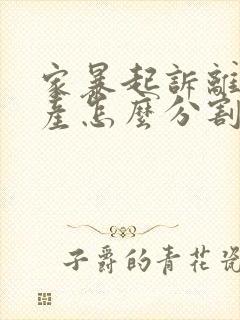 家暴起訴離
產怎麼分割
子爵的青花瓷